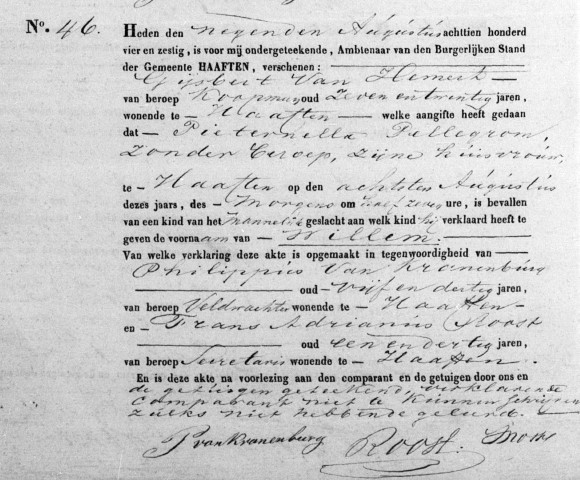 No. 46. Heden den negenden Augustus achttien honderd
vier en zestig, is voor mij ondergeteekende, Ambtenaar van den Burgerlijken Stand
der Gemeente HAAFTEN, verschenen:
Gijsbert Van Hemert
van beroep Koopman oud Zeven en twintig jaren,
wonende te Haaften welke aangifte heeft gedaan
dat Pieternella Pellegrom,
Zonder beroep, zijne huisvrouw,
te Haaften op den achtsten Augustus
dezes jaars, des Morgens om half zeven ure, is bevallen
van een kind van het Mannelijk geslacht aan welk kind hij verklaard heeft te
geven de voornaam van Willem.
Van welke verklaring deze akte is opgemaakt in tegenwoordigheid van
Philippus Van Kranenburg
oud Vijf en dertig jaren,
van beroep Veldwachter wonende te Haaften
en Frans Adrianus Roost
oud een en dertig jaren,
van beroep Secretaris wonende te Haaften.
En is deze akte na voorlezing aan den comparant en de getuigen door ons en
de getuigen geteekend, verklarende
Comparant niet te Kunnen schrijven
zulks niet hebbende geleerd.
P van Kranenburg Roost